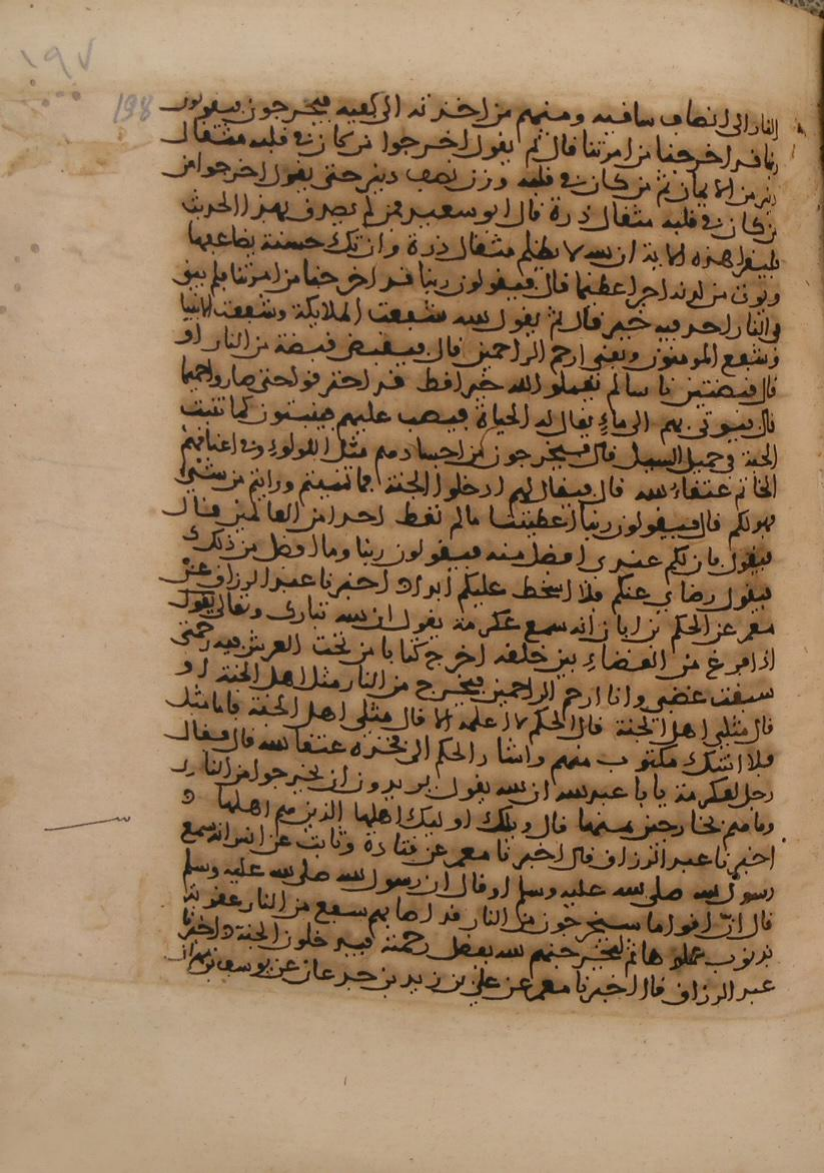 ١٩٧
198
النار الى انصاف ساقيه ومنهم من اخذته الى كعبيه فيخرجون فيقولون
ربنا قد اخرجنا من امرتنا قال ثم يقول اخرجوا من كان في قلبه مثقال
دينر من الايمان ثم من كان في قلبه وزن نصف دينر حتى يقول اخرجوا من
من كان في قلبه مثقال ذرة قال ابو سعيد فمن لم يصدق بهذا الحديث
فليقرا هذه الاية ان الله لا يظلم مثقال ذرة وان تك حسنة يضاعفها
ويوت من لدنه اجرا عظيما قال فيقولون ربنا قد اخرجنا من امرتنا فلم يبق
في النار احد فيه خير قال ثم يقول الله شفعت الملايكة وشفعت الانبيا
وشفع المومنون وبقي ارحم الراحمين قال فيقبض قبضة من النار او
قال قبضتين ناسا لم يعملوا لله خيرا قط قد احترقوا حتى صاروا حمما
قال فيوتى بهم الى ماء يقال له الحياة فيصب عليهم فينبتون كما تنبت
الحبة في حميل السيل قال فيخرجون من اجسادهم مثل اللولوء وفي اعناقهم
الخاتم عتقاء الله قال فيقال لهم ادخلوا الجنة فما تمنيتم ورايتم من شيء
فهو لكم قال فيقولون ربنا اعطيتنا ما لم تعط احدا من العالمين قال
فيقول فان لكم عندي افضل منه فيقولون ربنا وما افضل من ذلك
فيقول رضاي عنكم فلا اسخط عليكم ابدا اخبرنا عبد الرزاق عن
معمر عن الحكم بن ابان انه سمع عكرمة يقول ان الله تبارك وتعالى يقول
اذا فرغ من القضاء بين خلقه اخرج كتابا من تحت العرش فيه رحمتي
سبقت غضبي وانا ارحم الراحمين فيخرج من النار مثل اهل الجنة او
قال مثلي اهل الجنة قال الحكم لا اعلمه الا قال مثلي اهل الجنة فاما مثل
فلا اشك مكتوب منهم واشار الحكم الى فخذه عتقا الله قال فقال
رجل لعكرمة يابا عبد الله ان الله يقول يريدون ان يخرجوا من النار
وما هم بخارجين منها قال ويلك اوليك اهلها الذين هم اهلها
اخبرنا عبد الرزاق قال اخبرنا معمر عن قتادة وثابت عن انس انه سمع
رسول الله صلى الله عليه وسلم او قال ان رسول الله صلى الله عليه وسلم
قال ان اقواما سيخرجون من النار قد اصابهم سفع من النار عقوبة
بذنوب عملوها ثم ليخرجنهم الله بفضل رحمته فيدخلون الجنة اخبرنا
عبد الرزاق قال اخبرنا معمر عن علي بن زيد بن جدعان عن يوسف بن مهران